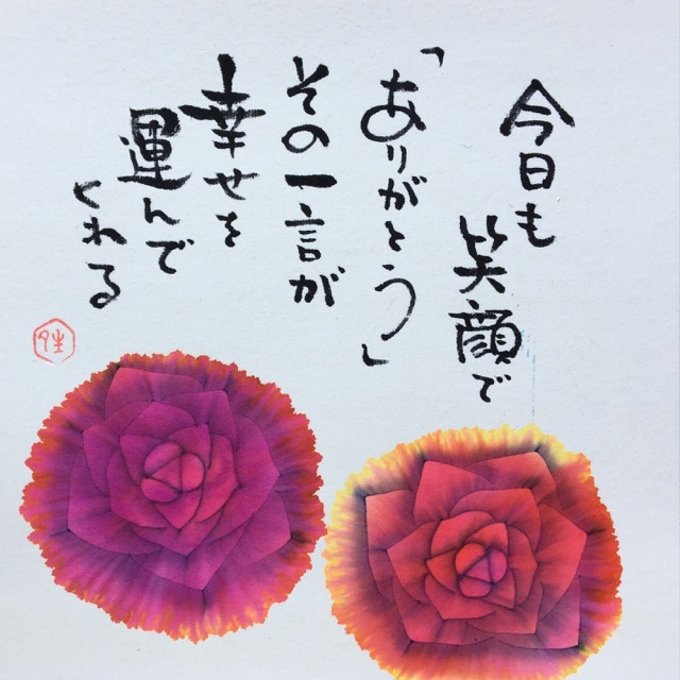 今日も
笑顔で
「ありがとう」
その一言が
幸せを
運んで
くれる